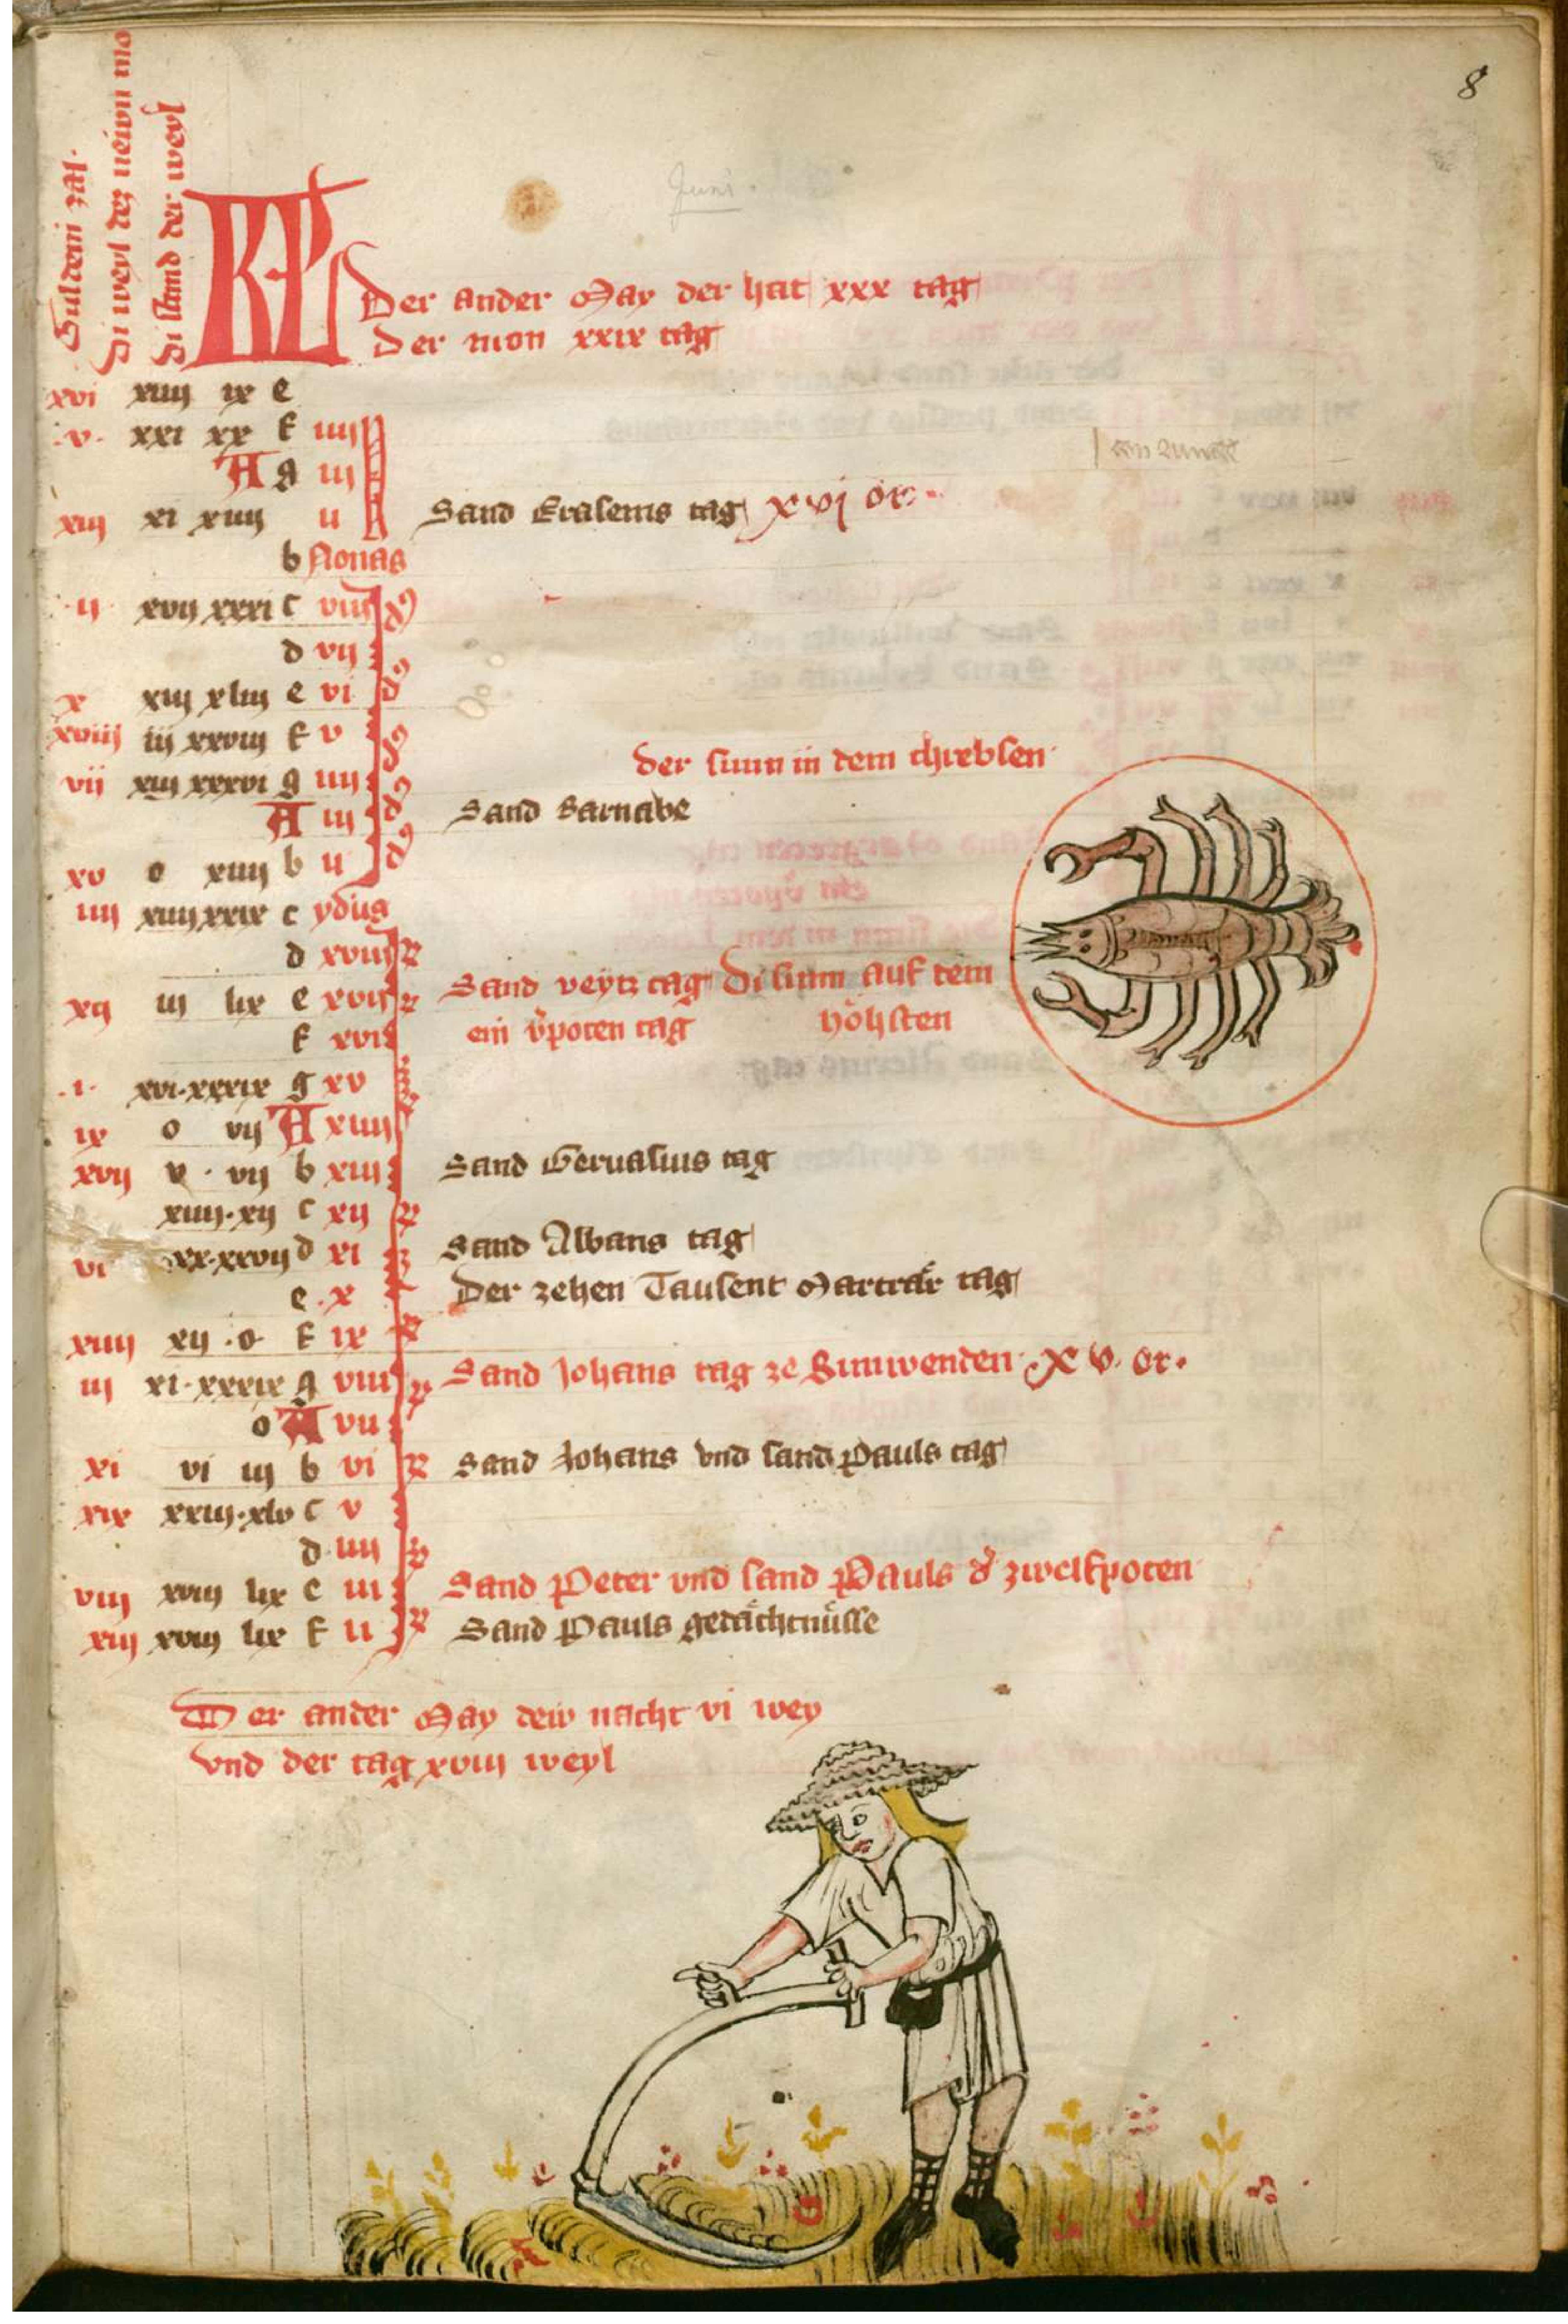 8
Juni
Guldein zal·
Di weyl dez newn mo
Di stund der weyl
KL
Der ander May der hat xxx tag
Der mon xxix tag
xvi xiiij ix e
·v· xxi xx f iiij
A g iij
xiij xi xiiij ij Sand Erasems tag xvj or·
b Nonas
·ij· xvij xxxi c viij
d vij
x xiij xliij e vi
xviij iij xxviij f v
der sunn in dem chrebsen·
vii xiij xxxvi g iiij
A iij Sand Barnabe
xv o xiiij b ij
iiij xiiij xxix c ydus
d xviij
xij iij lix e xvij Sand veytz tag Di sunn auf dem
f xvi ein vpoten tag höhsten
·i· xvi·xxxix g xv
ix o vij A xiiij
xvij v · vij b xiij Sand Geruasius tag
xiiij·xij c xij
vi xx·xxvij d xi Sand Albans tag
e·x Der zehen Tausent Marträr tag
xiiij xij·o· f ix
iij xi·xxxix g viij Sand Johans tag ze Sunwenden· XV· or·
o A vij
xi vi iij b vi Sand Johans vnd sand Pauls tag
xix xxiij·xlv c v
d·iiij
viij xviij lix e iij Sand Peter vnd sand Pauls d' zwelfpoten
xiij xviij lix f ij Sand Pauls gedächtnüsse
Der ander May dew nacht vi wey
vnd der tag xviij weyl